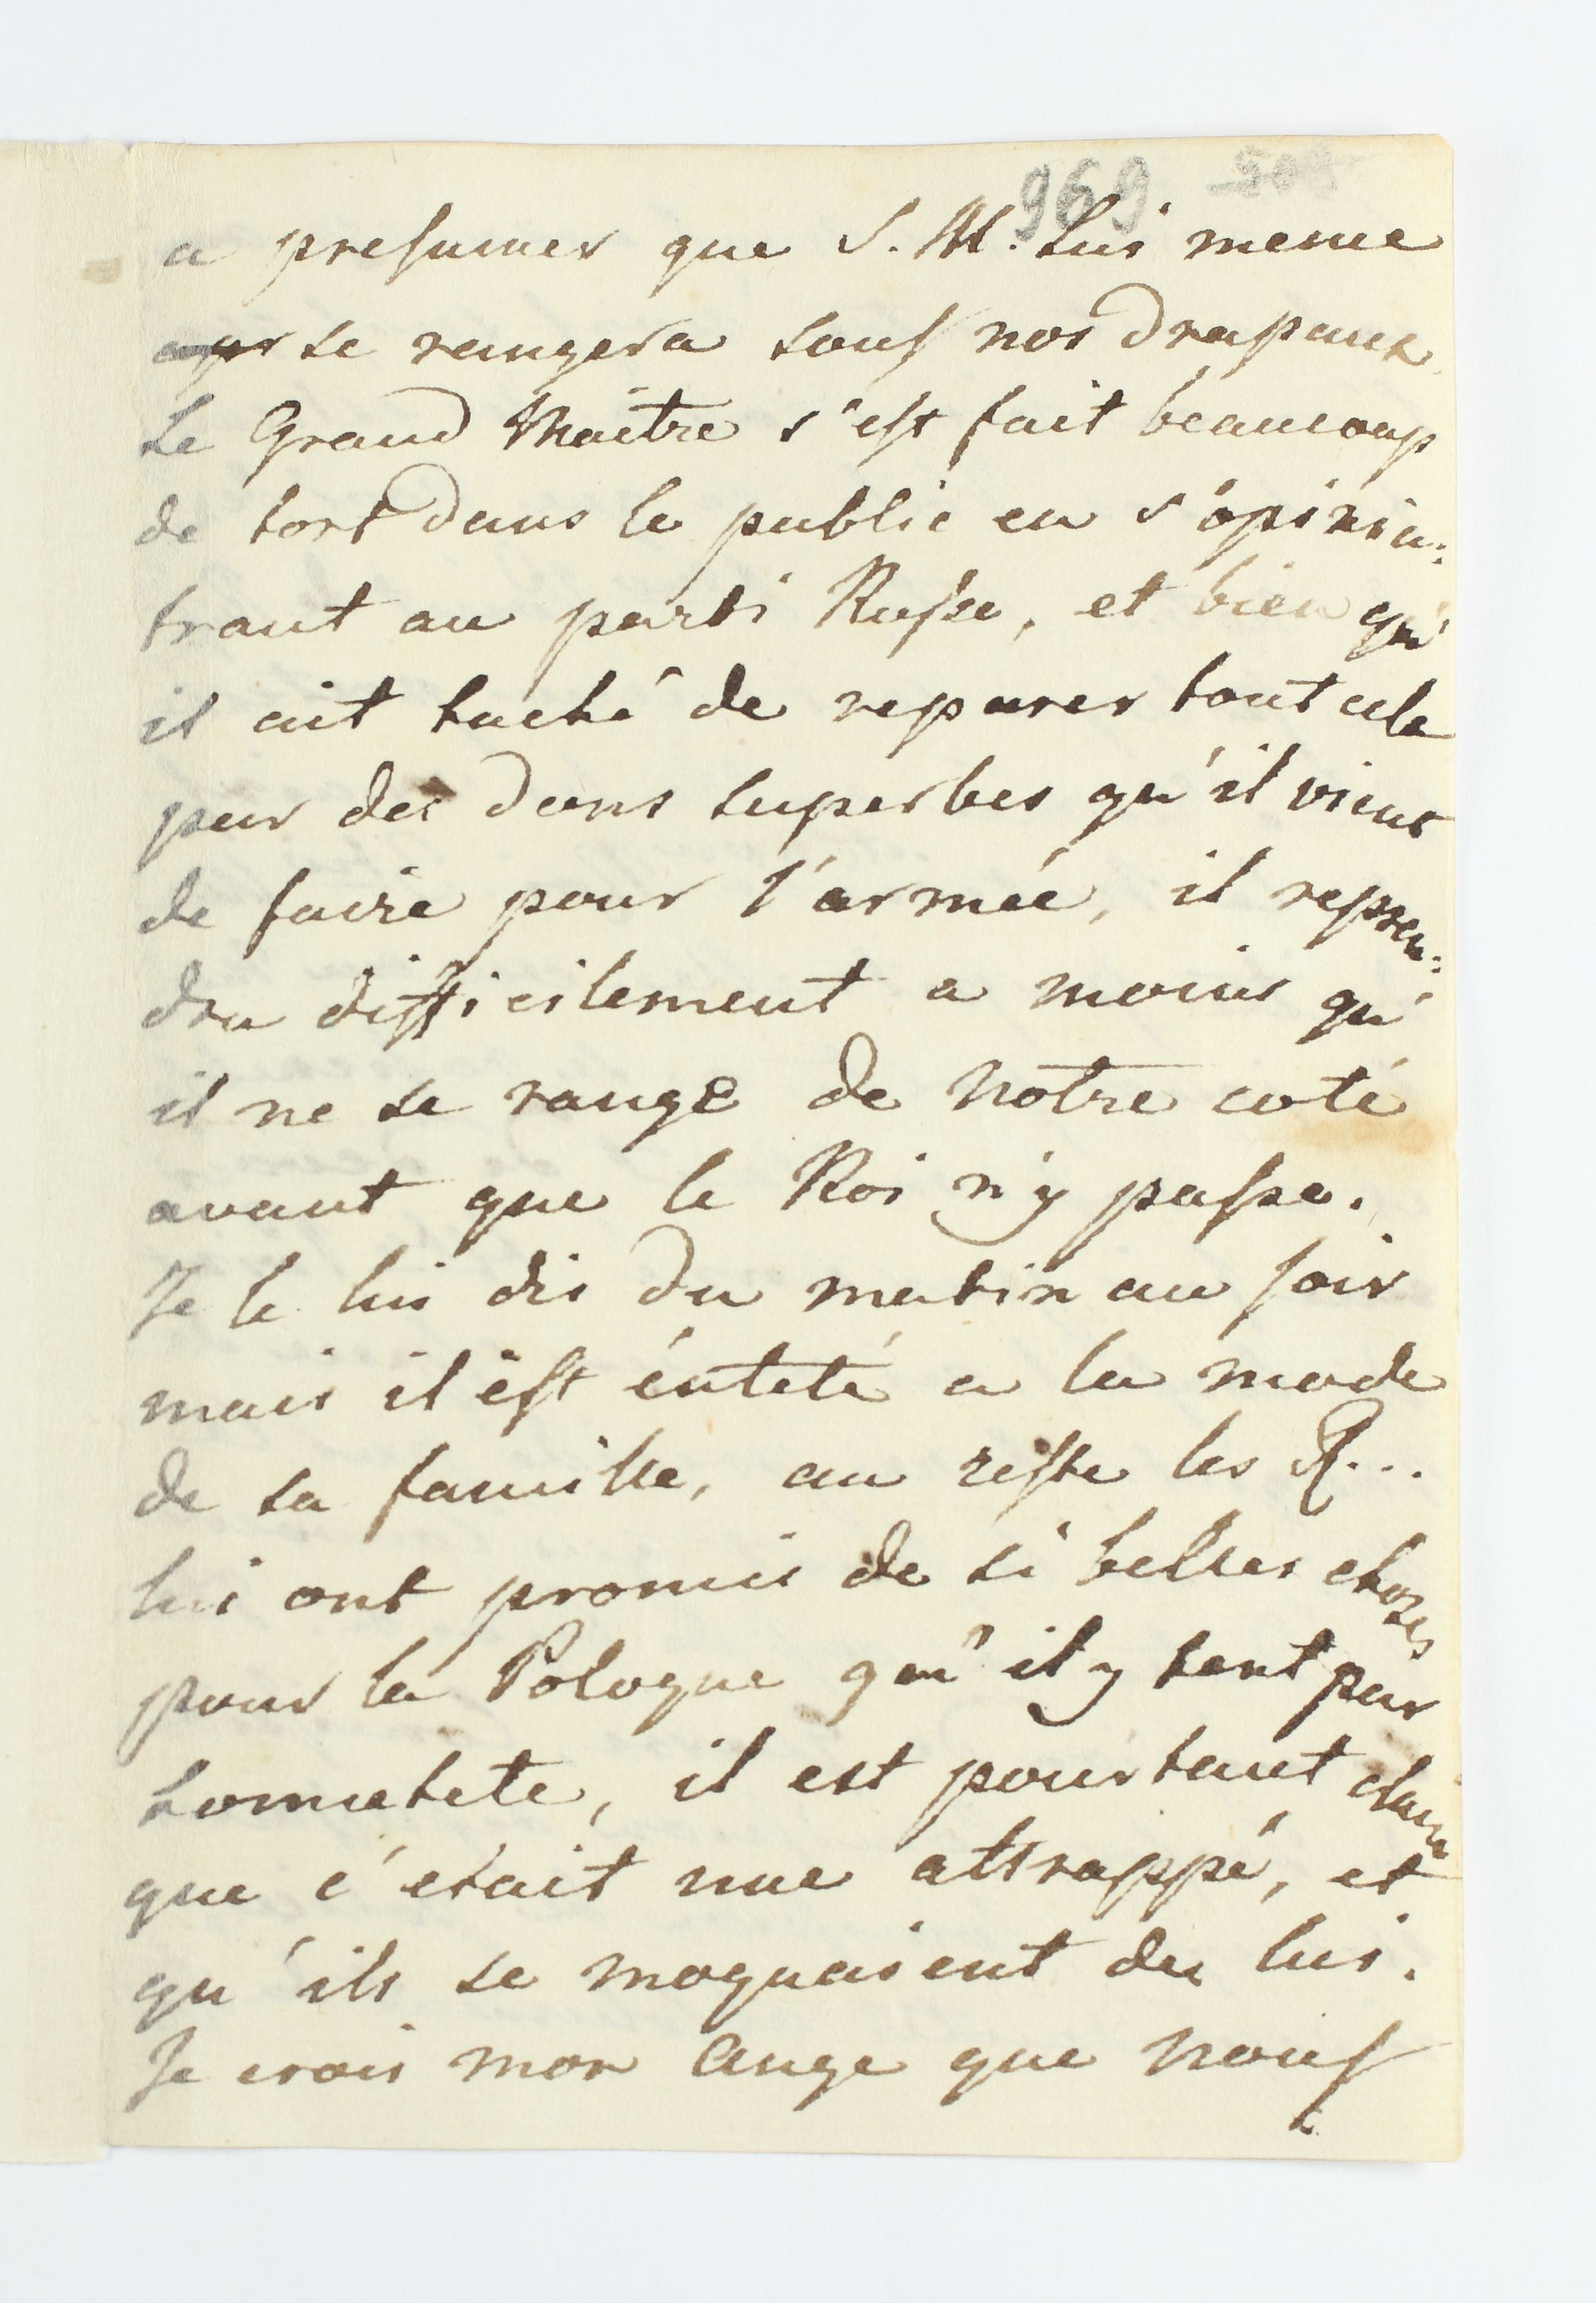 969 509
a presumer que S. M. Lui meme
se rangera sous nos drapaux
Le Grand Maitre s'est fait beaucoup
de tort dans le public en s'opinia:
trant au parti Russe, et bien qu'
il ait taché de reparer tout cela
par des dons superbes qu'il vient
de faire pour l'armée, il repren:
dra difficilement a moins qu'
il ne se range de notre coté
avant que le Roi n'y passe.
Je le lui dis du matin au soir
mais il est énteté a la mode
de sa famille, au reste les R...
lui ont promis de si belles choses
pour la Pologne qu'il y tent par
honnetete, il est pourtant clair
que c'etait une attrappé, et
qu'ils se moquaient de lui.
Je crois mon Ange que nous